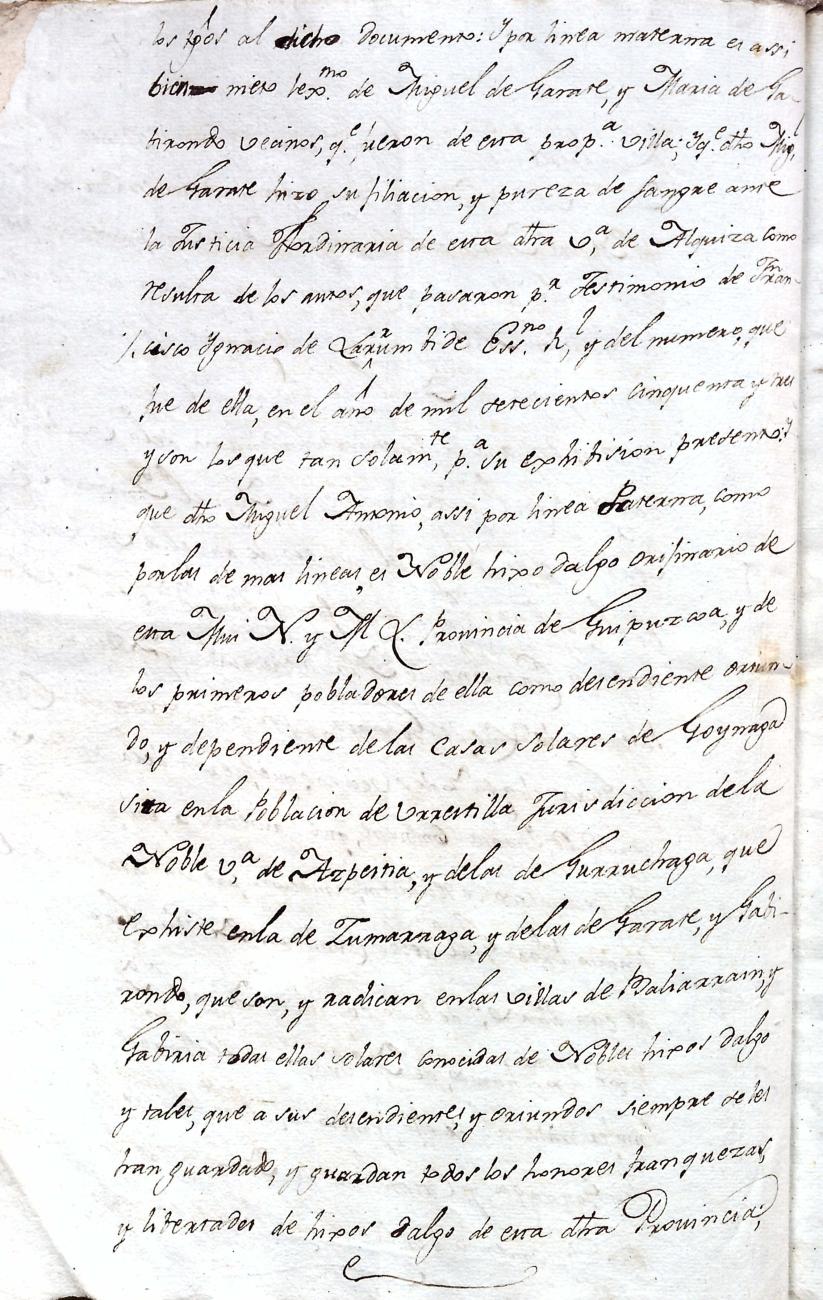 los tgos al dicho Documento: Y por linea materna es assi
bien nieto lexmo. de Miguel de Garate, y Maria de Ga-
birondo vecinos, qe. fueron de esta propa. villa; Yqe. dho Migl.
de Garate hizo su filiacion, y pureza de sangre ante
la Justicia Hordinaria de esta dha va, de Alquiza como
resulta de los autos, que pasaron pr. Testimonio de Fran-
cisco Ygnacio de Larrumbide Essno. Rl, y del numero, que
fue de ella, en el año de mil setecientos cinquenta y tres
y son los que tan solamte, pa. su exhibision presento: Y
que dho Miguel Antonio, assi por linea Paterna, como
por las de mas lineas, es Noble hixo dalgo orijinario de
esta Mui N. y M L. Provincia de Guipuzcoa, y de
los primeros pobladores de ella como desendiente oriun-
do, y dependiente de las Casas solares de Goynaga
sita en la Poblacion de Urrestilla Jurisdiccion de la
Noble va, de Azpeitia, y de las de Gurruchaga, que
exhiste en la de Zumarraga, y de las de Garate, y Gabi-
rondo, que son, y radican en las villas de Baliarrain, y
Gabiria todas ellas solares conocidas de Nobles hixos dalgo
y tales, que a sus desendientes, y oriundos siempre se les
han guardado, y guardan todos los honores franquezas,
y libertades de hixos dalgo de esta dha Provincia;